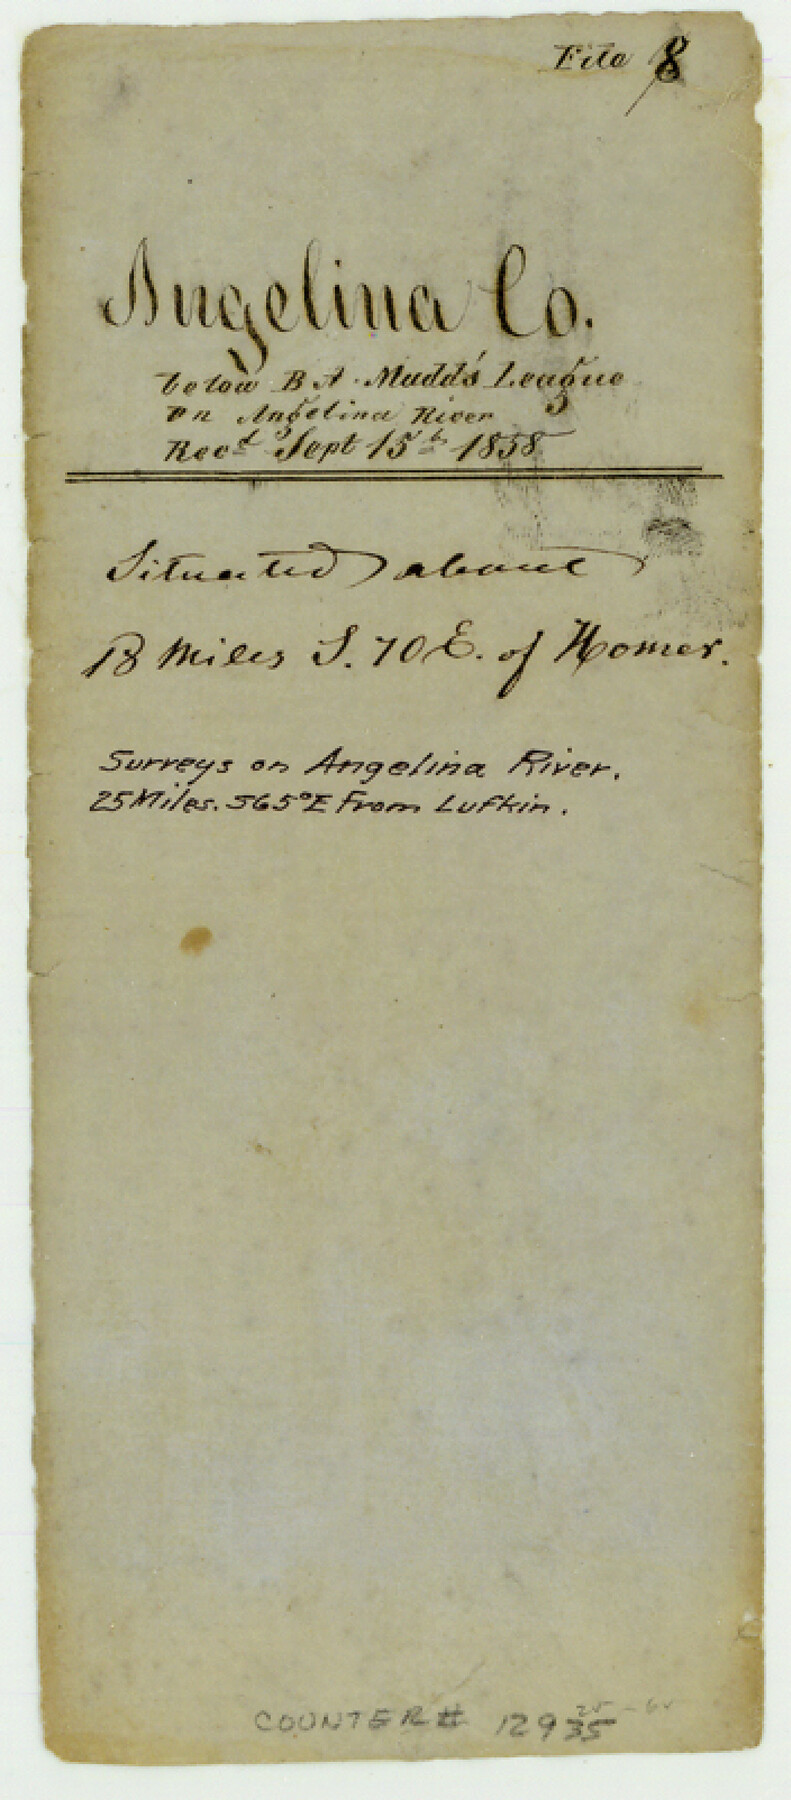 File 8
Angelina Co.
below B A. Mudd's League
on Angelina River
Recd Sept 15th 1858
Situated about
18 Miles S. 70 E. of Homer.
Surveys on Angelina River.
25 Miles. S65°E From Lufkin.
COUNTER# 12935